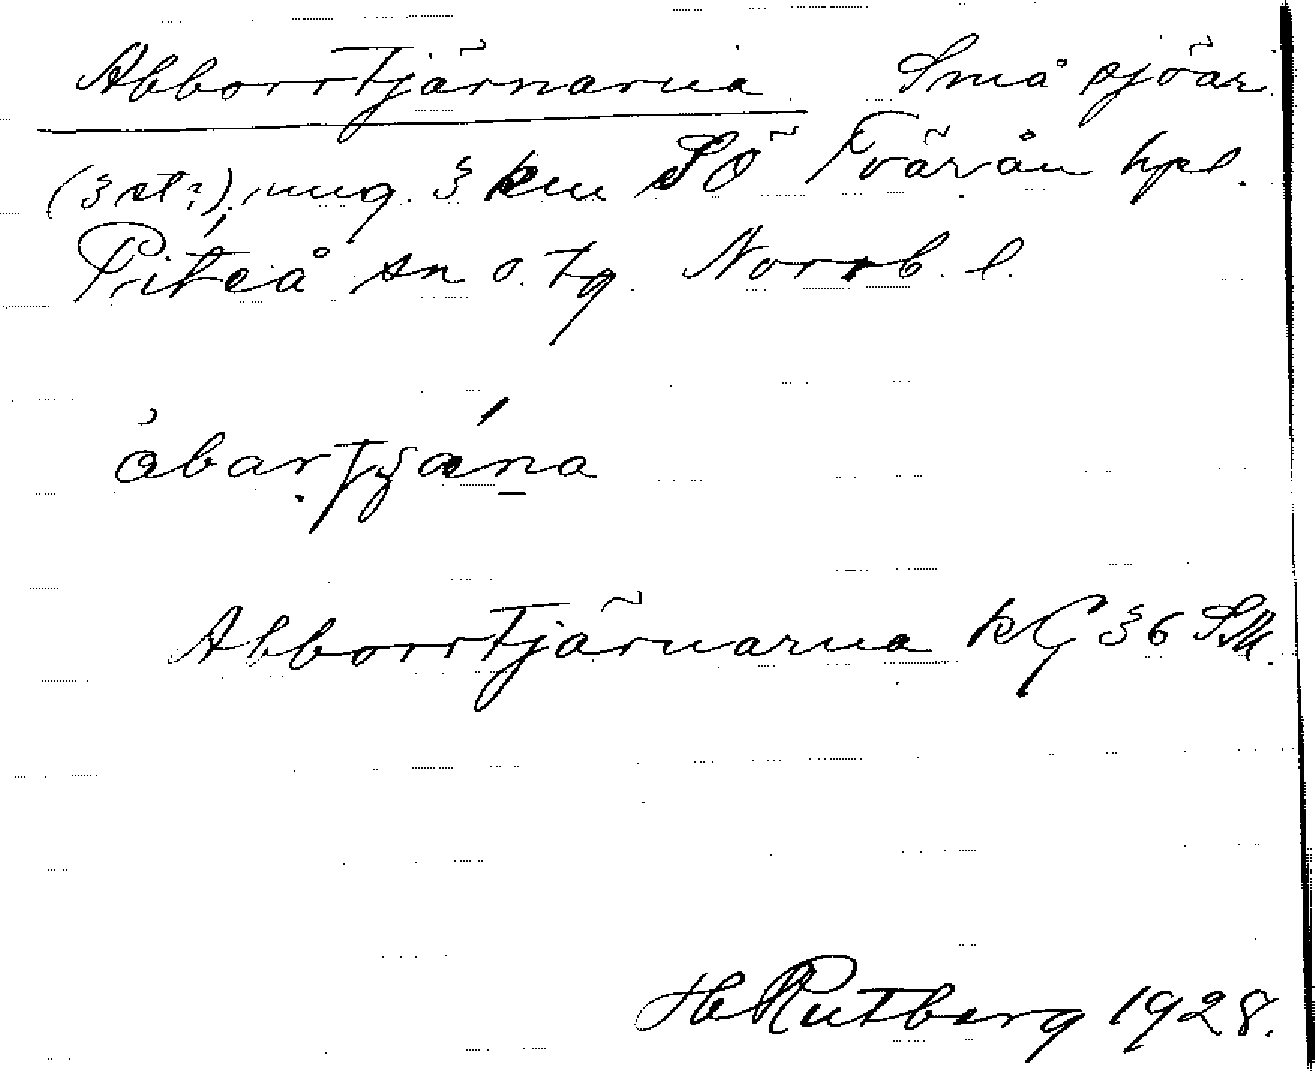 Abborrtjärnarna Små sjöar
(3 st.), ung. 3 km SÖ Tvärån hpl.
Piteå sn o. tg. Norrb. l.
åbartjäna
Abborrtjärnarna kG 36 SM.
H Rutberg 1928.